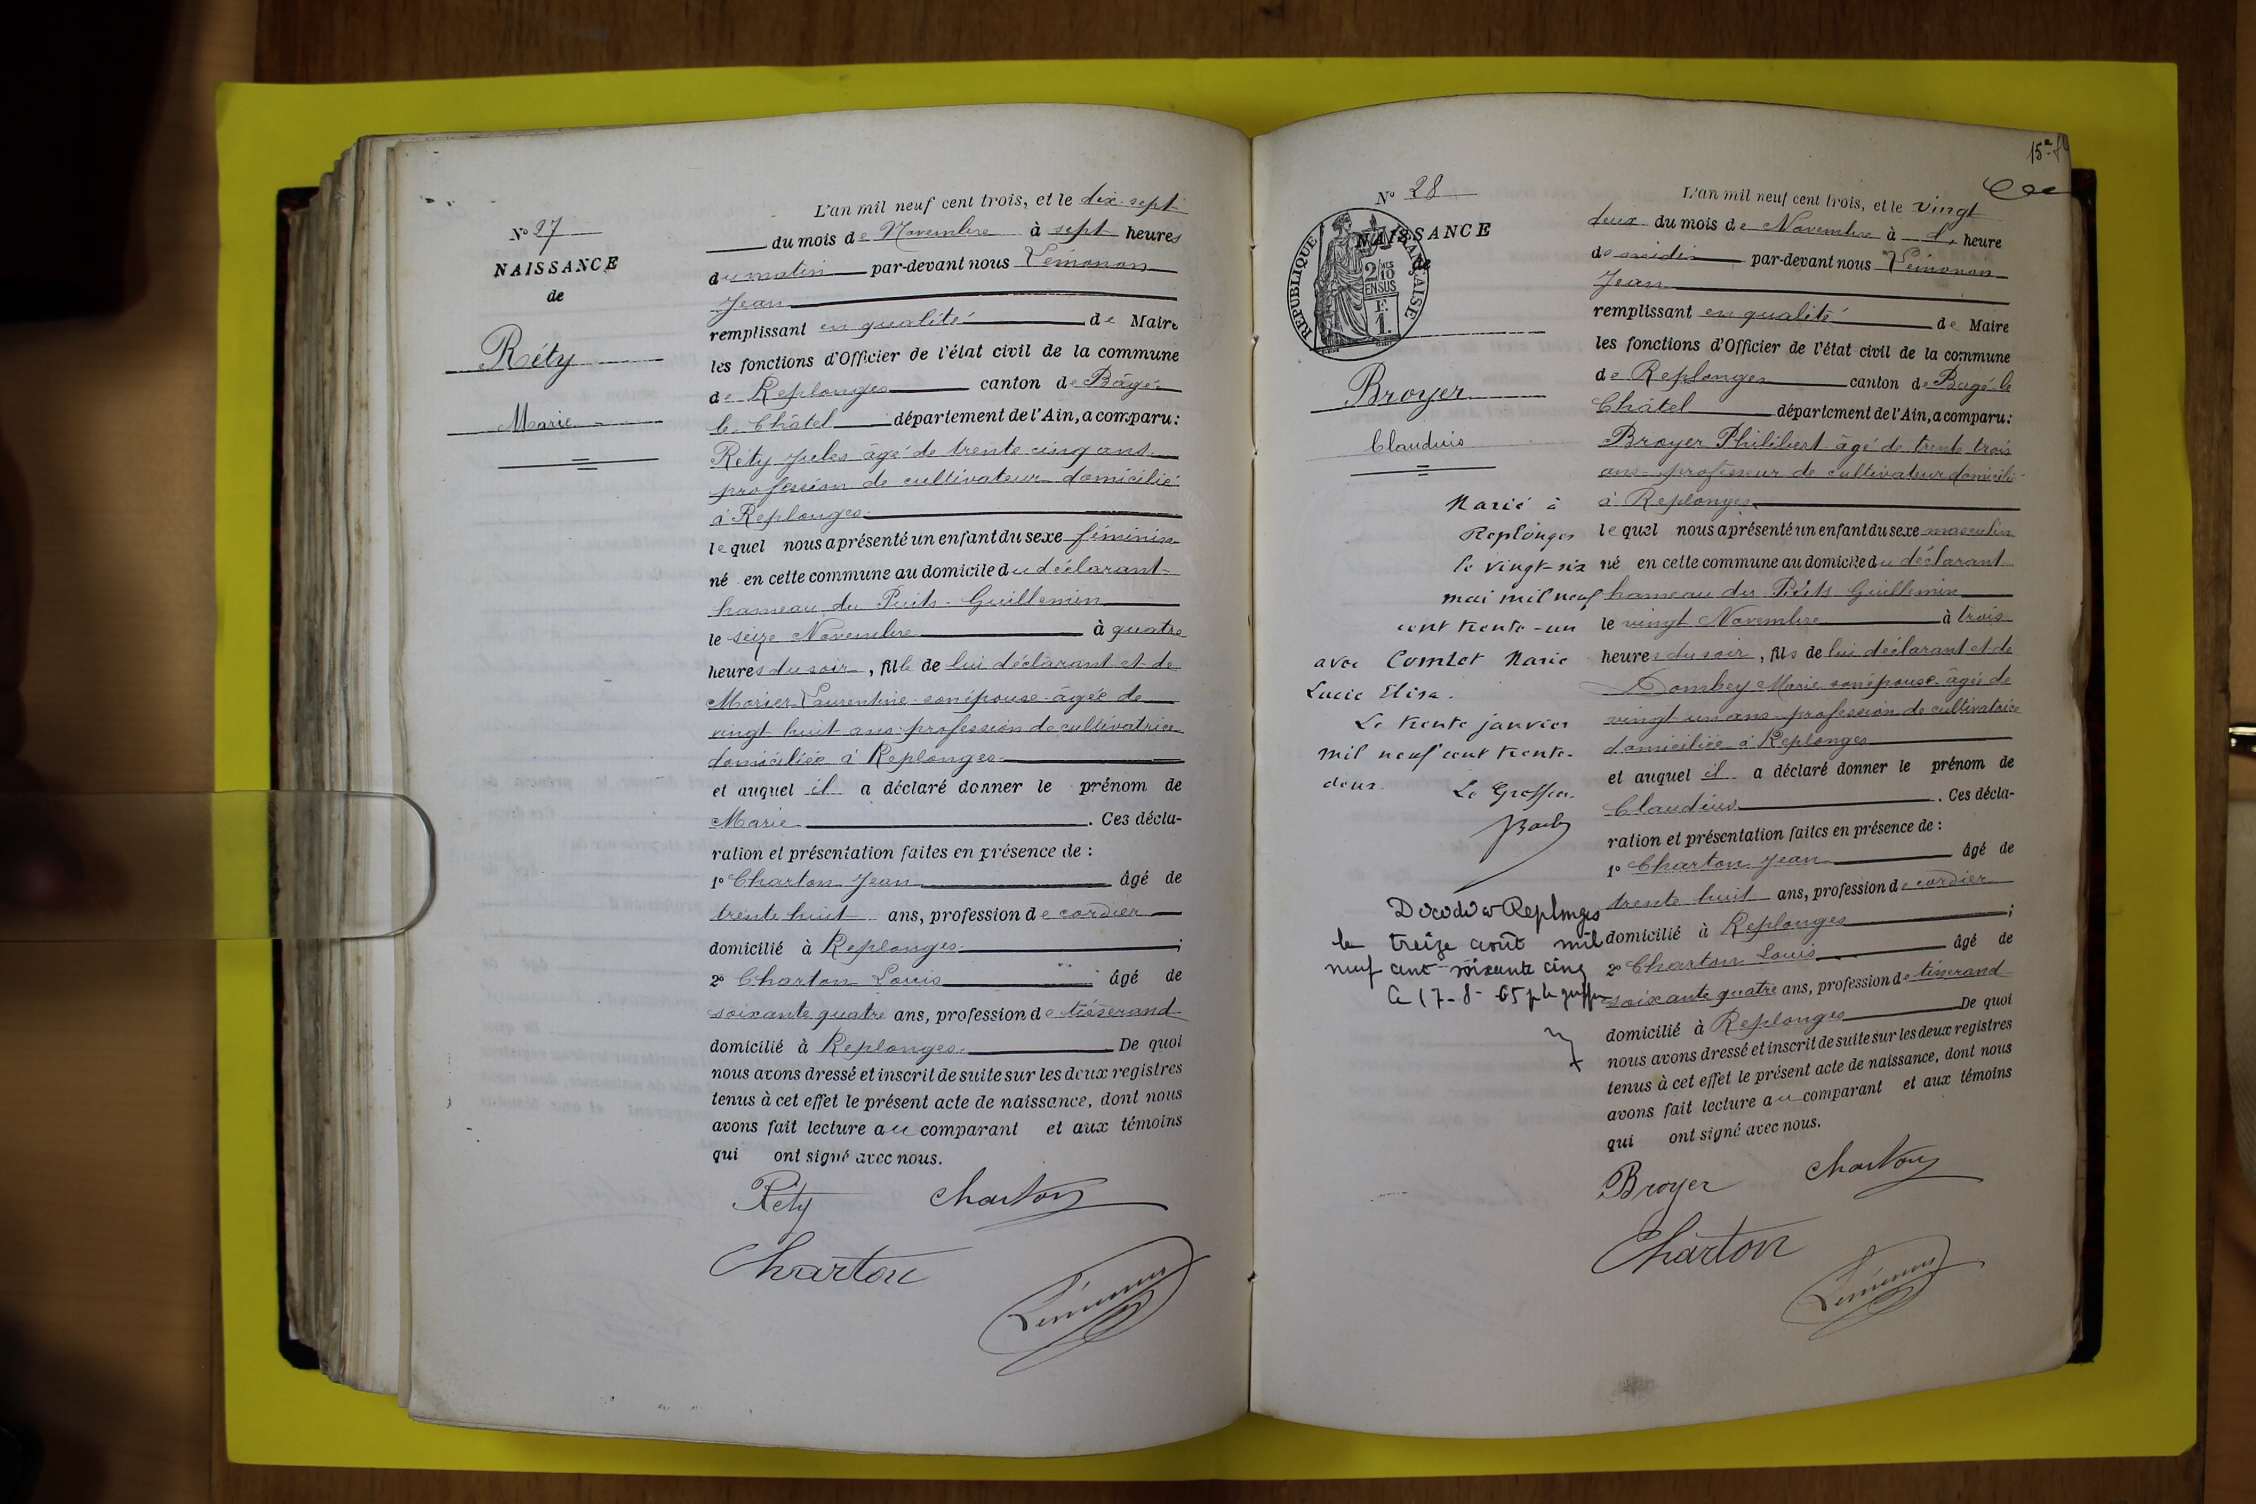 N° 27
NAISSANCE
de
Réty
Marie
L'an mil neuf cent trois, et le dix-sept
du mois de Novembre à sept heures
du matin par-devant nous Lémonon
Jean
remplissant en qualité de Maire
les fonctions d'Officier de l'état civil de la commune
de Replonges canton de Bâgé
le Châtel département de l'Ain, a comparu :
Réty Jules âgé de trente cinq ans
profession de cultivateur domicilié
à Replonges
lequel nous a présenté un enfant du sexe féminin
né en cette commune au domicile du déclarant
hameau du Puits-Guillemin
le seize Novembre à quatre
heures du soir, fille de lui déclarant et de
Morier Laurentine son épouse âgée de
vingt huit ans profession de cultivatrice
domiciliée à Replonges
et auquel il a déclaré donner le prénom de
Marie. Ces décla-
ration et présentation faites en présence de :
1° Charton Jean âgé de
trente huit ans, profession de cordier
domicilié à Replonges ;
2° Charton Louis âgé de
soixante quatre ans, profession de tisserand
domicilié à Replonges. De quoi
nous avons dressé et inscrit de suite sur les deux registres
tenus à cet effet le présent acte de naissance, dont nous
avons fait lecture au comparant et aux témoins
qui ont signé avec nous.
Réty Charton
Charton
Lémonon
15e
N° 28
NAISSANCE
de
REPUBLIQUE FRANÇAISE
2/10
EN SUS
F.
1.
Broyer
Claudius
Marié à
Replonges
le vingt-six
mai mil neuf
cent trente-un
avec Comtet Marie
Lucie Elisa.
Le trente janvier
mil neuf cent trente-
deux. Le Greffier.
Décédé à Replonges
le treize août mil
neuf cent soixante cinq
Le 17-8-65 p le greffier
L'an mil neuf cent trois, et le vingt
deux du mois de Novembre à heure
de midi par-devant nous Lémonon
Jean
remplissant en qualité de Maire
les fonctions d'Officier de l'état civil de la commune
de Replonges canton de Bagé-le
Châtel département de l'Ain, a comparu :
Broyer Philibert âgé de trente trois
ans profession de cultivateur domicilié
à Replonges
lequel nous a présenté un enfant du sexe masculin
né en cette commune au domicile du déclarant
hameau du Puits Guillemin
le vingt Novembre à trois
heures du soir, fils de lui déclarant et de
Dombey Marie son épouse âgée de
vingt un ans profession de cultivatrice
domiciliée à Replonges
et auquel il a déclaré donner le prénom de
Claudius. Ces décla-
ration et présentation faites en présence de :
1° Charton Jean âgé de
trente huit ans, profession de cordier
domicilié à Replonges ;
2° Charton Louis âgé de
soixante quatre ans, profession de tisserand
domicilié à Replonges De quoi
nous avons dressé et inscrit de suite sur les deux registres
tenus à cet effet le présent acte de naissance, dont nous
avons fait lecture au comparant et aux témoins
qui ont signé avec nous.
Broyer Charton
Charton
Lémonon